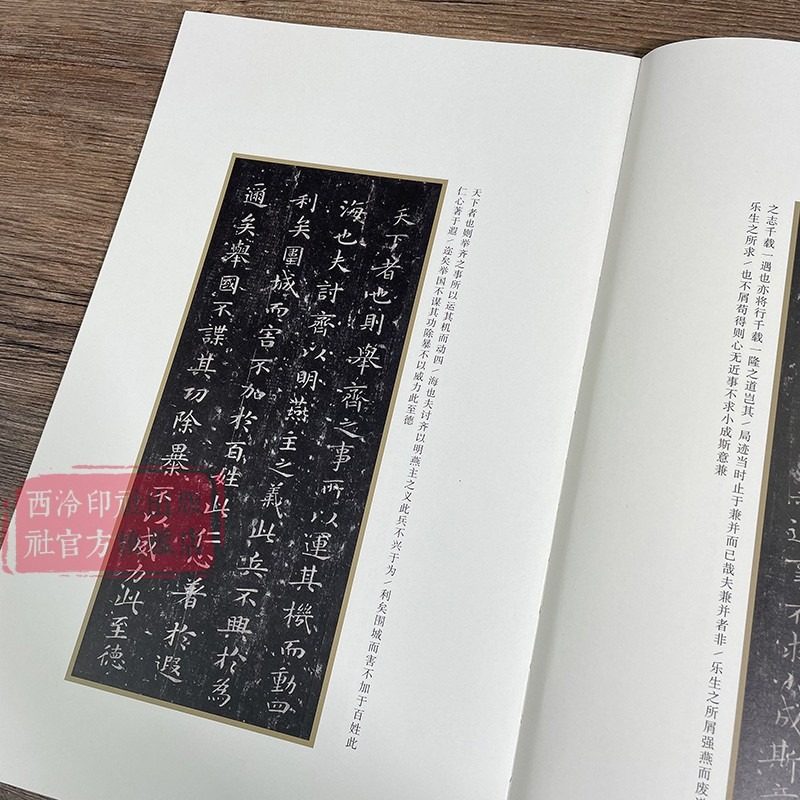 之志千载一遇也亦将行千载一隆之道岂其/局迹当时止于兼并而已哉夫兼并者非/乐生之所屑强燕而废
乐生之所求/也不屑苟得则心无近事不求小成斯意兼
近事不求小成斯意
天下者也则举齐之事所以运其机而动四/海也夫讨齐以明燕主之义此兵不兴于为/利矣围城而害不加于百姓此
仁心著于遐/迩矣举国不谋其功除暴不以威力此至德
天下者也則舉齊之事所以運其機而動四
海也夫討齊以明燕主之義此兵不興於為
利矣圍城而害不加於百姓此仁心著於遐
邇矣舉國不謀其功除暴不以威力此至德
西泠印社
社官方